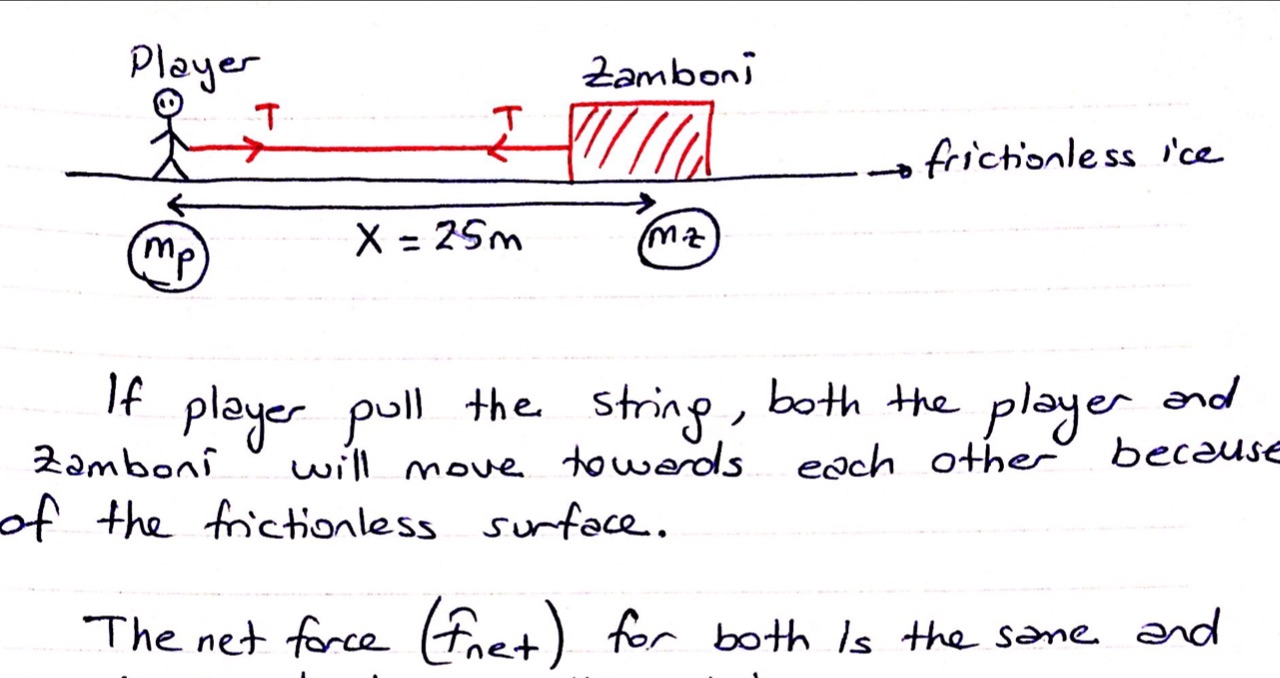 Player
Zamboni
T
T
frictionless ice
mp
X = 25m
mz
If player pull the string, both the player and
Zamboni will move towards each other because
of the frictionless surface.
The net force (Fnet) for both is the same and